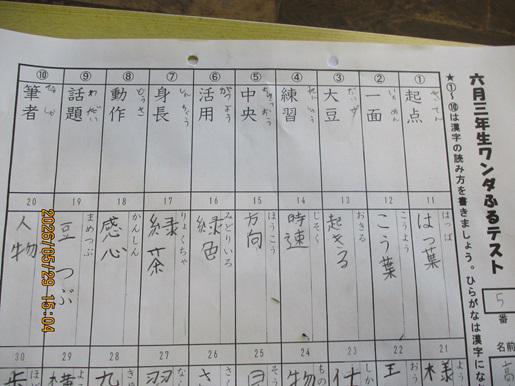 六月三年生ワンダふるテスト
★①~⑩は漢字の読み方を書きましょう。ひらがなは漢字にな
5番
名前
高
① 起点 きてん
② 一面 いちめん
③ 大豆 だいず
④ 練習
⑤ 中央
⑥ 活用 かつよう
⑦ 身長
⑧ 動作
⑨ 話題 わだい
⑩ 筆者
11 はっぱ はっ葉
12 こうよう こう葉
13 おきる 起きる
14 じそく 時速
15 ほうこう 方向
16 みどりいろ 緑色
17 りょくちゃ 緑茶
18 かんしん 感心
19 まめつぶ 豆つぶ
20 人物
21 よう 様
22 おう 王
23 し 仕
24 もの 物
25
26
27
28 きゅう 九
29 横
30 歩
2026/05/29 15:04